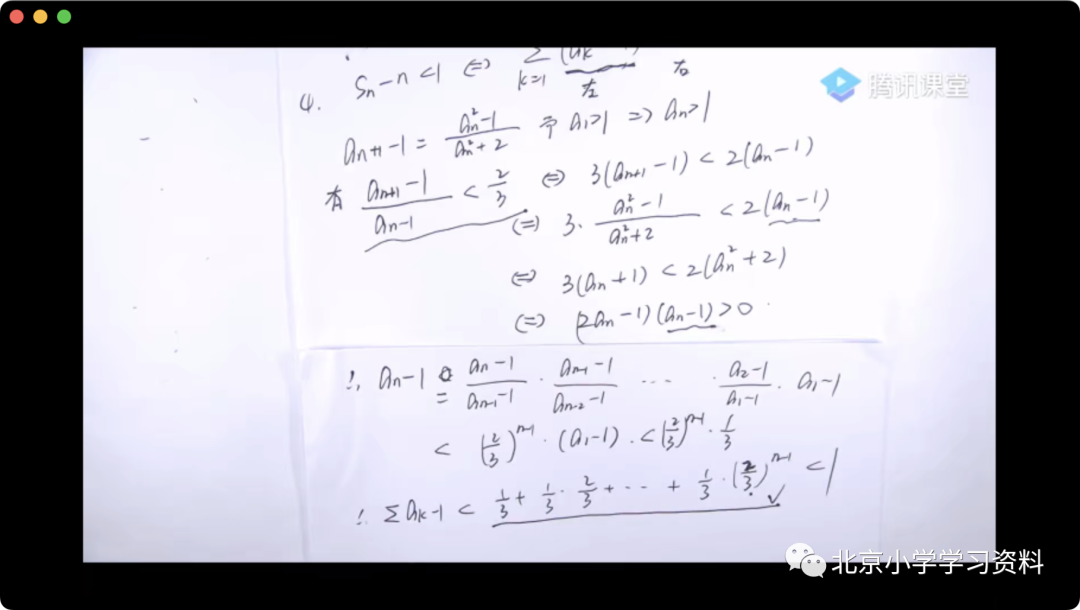 4. Sₙ-n<1 ⇔ Σ k=1 (aₖ
左 右
腾讯课堂
aₙ₊₁-1= (aₙ²-1)/(aₙ²+2) 予 a₁>1 ⇒ aₙ>1
有 (aₙ₊₁-1)/(aₙ-1) < 2/3 ⇔ 3(aₙ₊₁-1) < 2(aₙ-1)
⇔ 3·(aₙ²-1)/(aₙ²+2) < 2(aₙ-1)
⇔ 3(aₙ+1) < 2(aₙ²+2)
⇔ (2aₙ-1)(aₙ-1)>0
∴ aₙ-1 = (aₙ-1)/(aₙ₋₁-1) · (aₙ₋₁-1)/(aₙ₋₂-1) ··· · (a₂-1)/(a₁-1) · a₁-1
< (2/3)ⁿ⁻¹ · (a₁-1) · < (2/3)ⁿ⁻¹ · 1/3
∴ Σaₖ-1 < 1/3 + 1/3 · 2/3 + ··· + 1/3 · (2/3)ⁿ⁻¹ < 1
北京小学学习资料